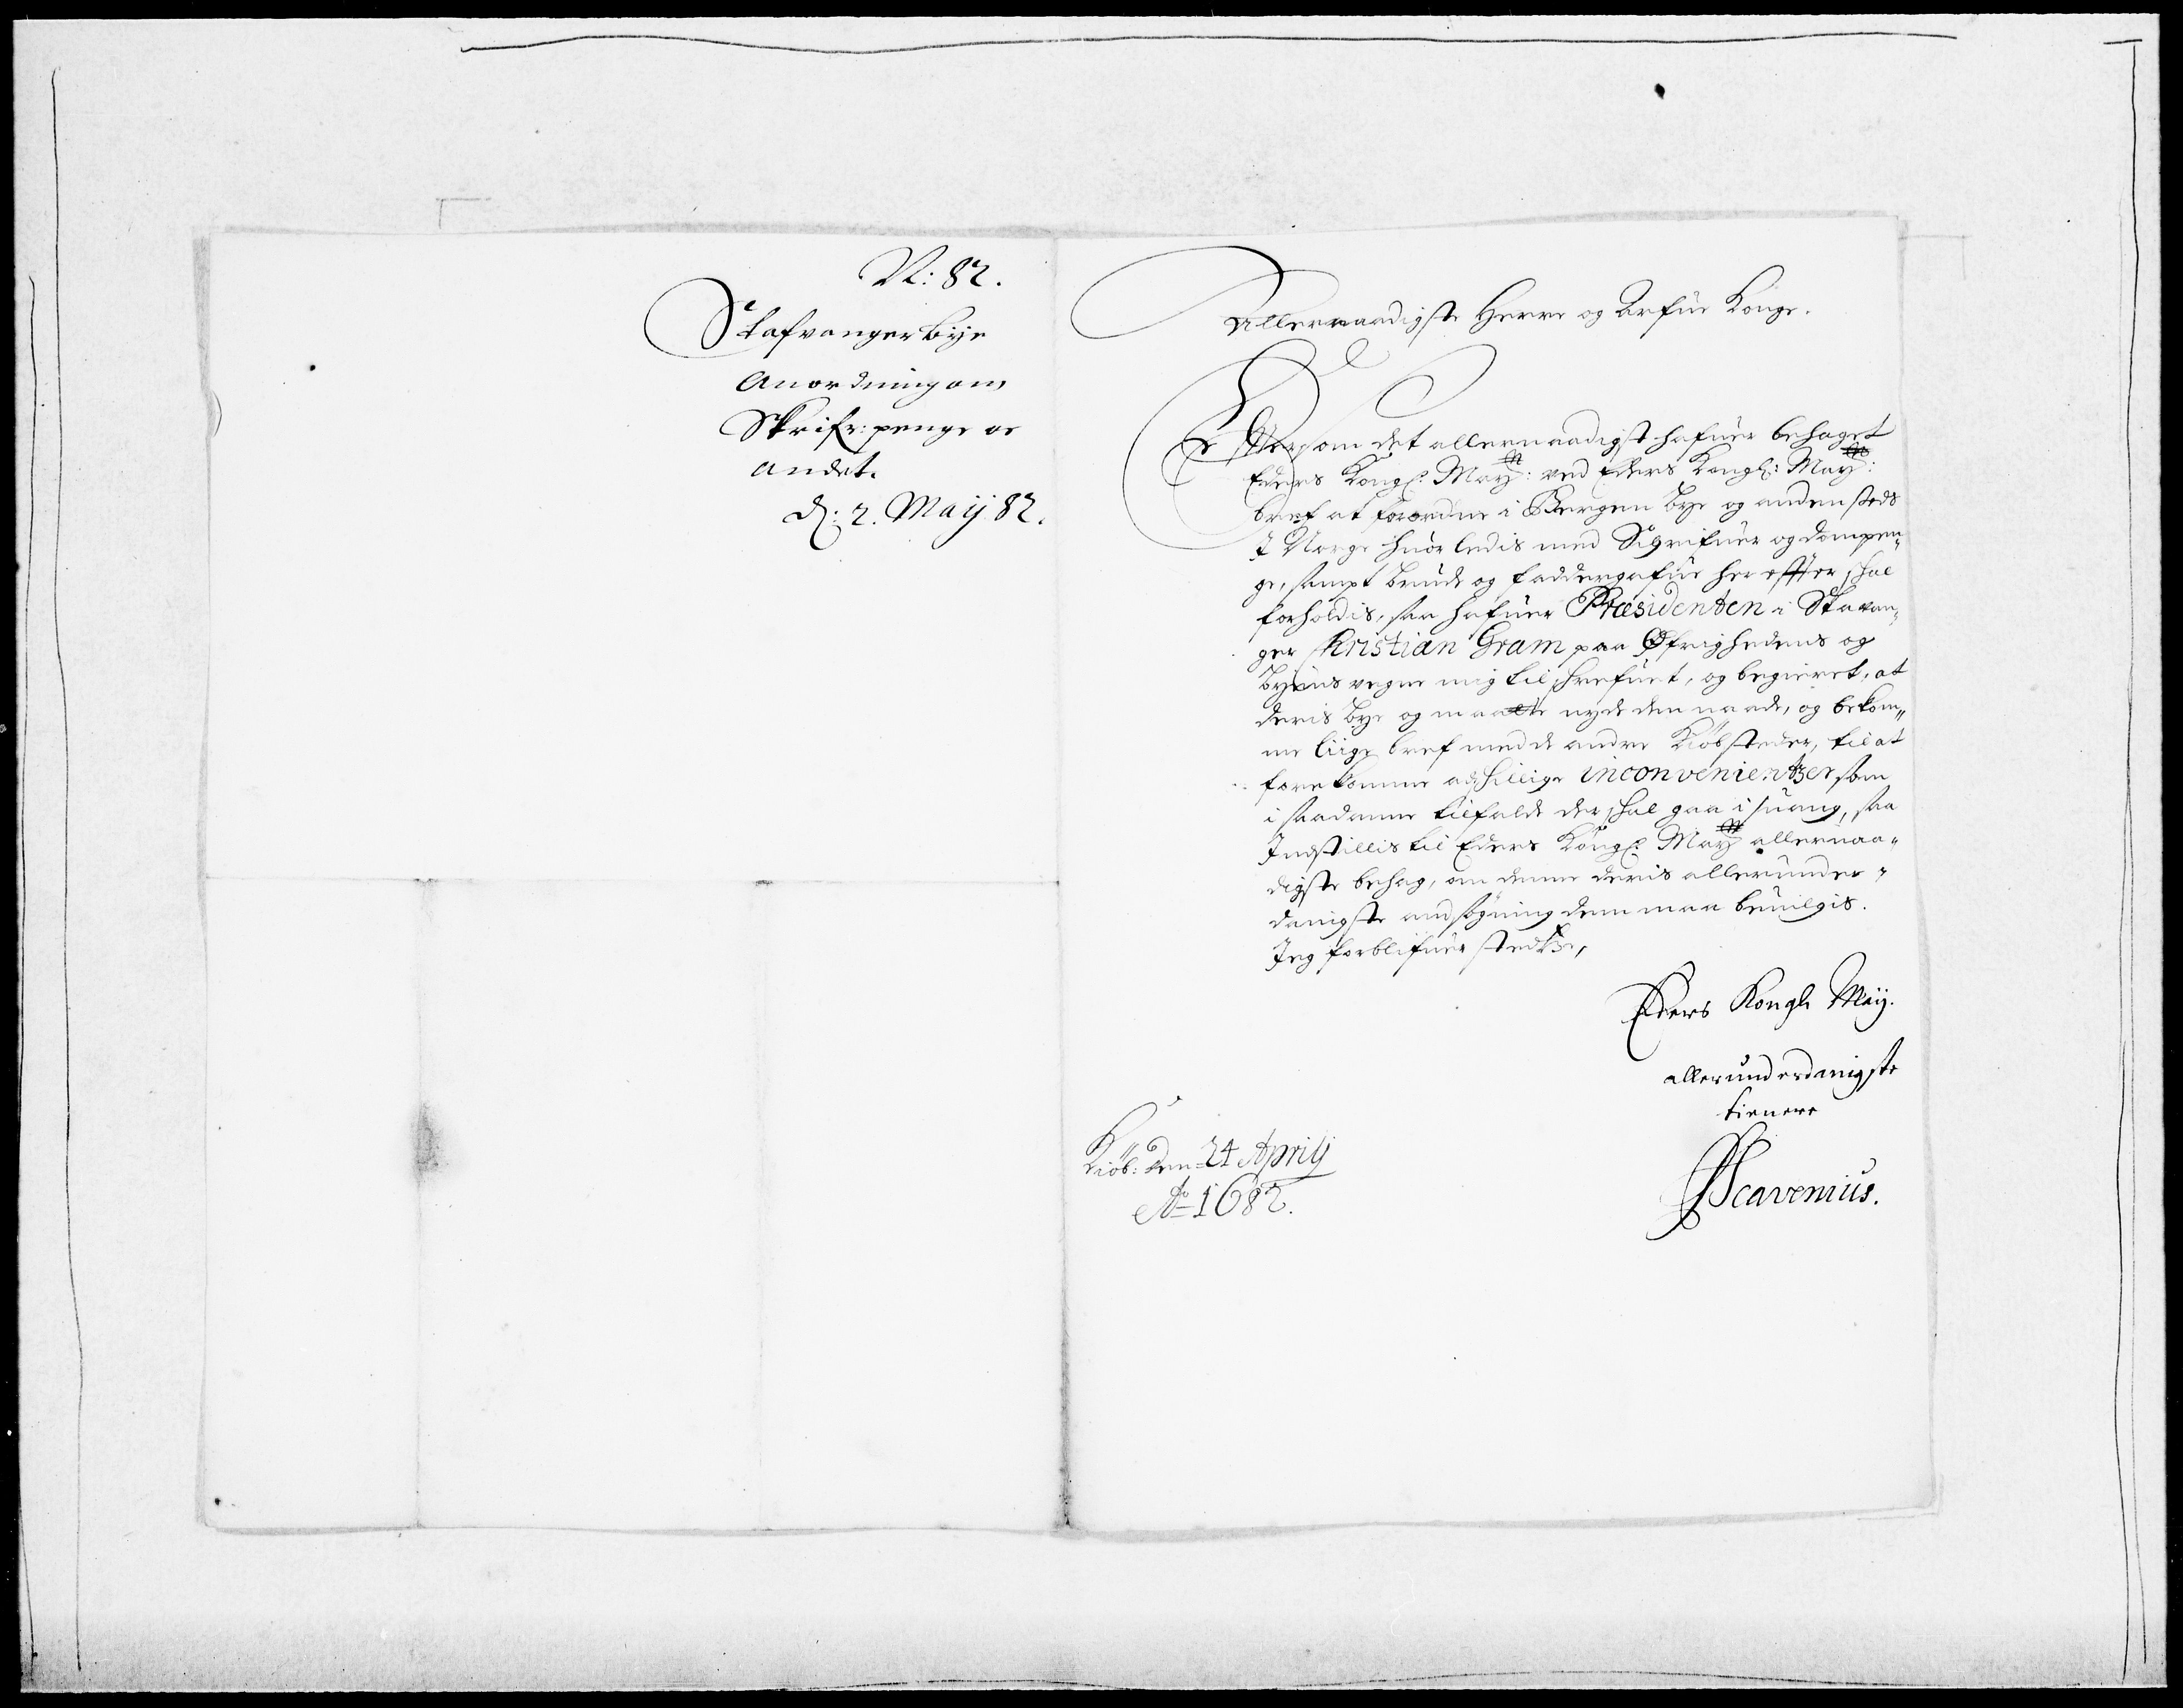 N: 82.
Stafvanger bye
Anordning om
Skrifr: penge oc
andet.
d: 2. Maij 82.
Allernaadigste Herre og Arfue Konge.
Efftersom det allernaadigst hafuer behaget
Eders Kongl: May: ved Eders Kongl: May:
bref at forordne i Bergen bye og andensteds
I Norge huorledis med Sigrifuer og dompen„
ge, sampt brude og faddergafue her effter skal
forholdis, saa hafuer Præsidenten i Stavan„
ger Kristian Gram paa Øfrighedens og
Byens vegne mig tilskrefuet, og begieret, at
deris bye og maatte nyde den naade, og bekom„
me liige bref med de andre Kiøbsteder, til at
forekomme adskillige inconvenientzer som
i saadanne tilfælde der skal gaa i suang, saa
Indstillis til Eders Kongl: May allernaa„
digste behag, om denne deris allerunder„
danigste ansøgning dem maa beuilgis.
Jeg forblifuer stedtze,
Eders Kongl May.
allerunderdanigste
tienere
PScavenius.
Kiøb: den 24 Aprilj
Ao 1682.